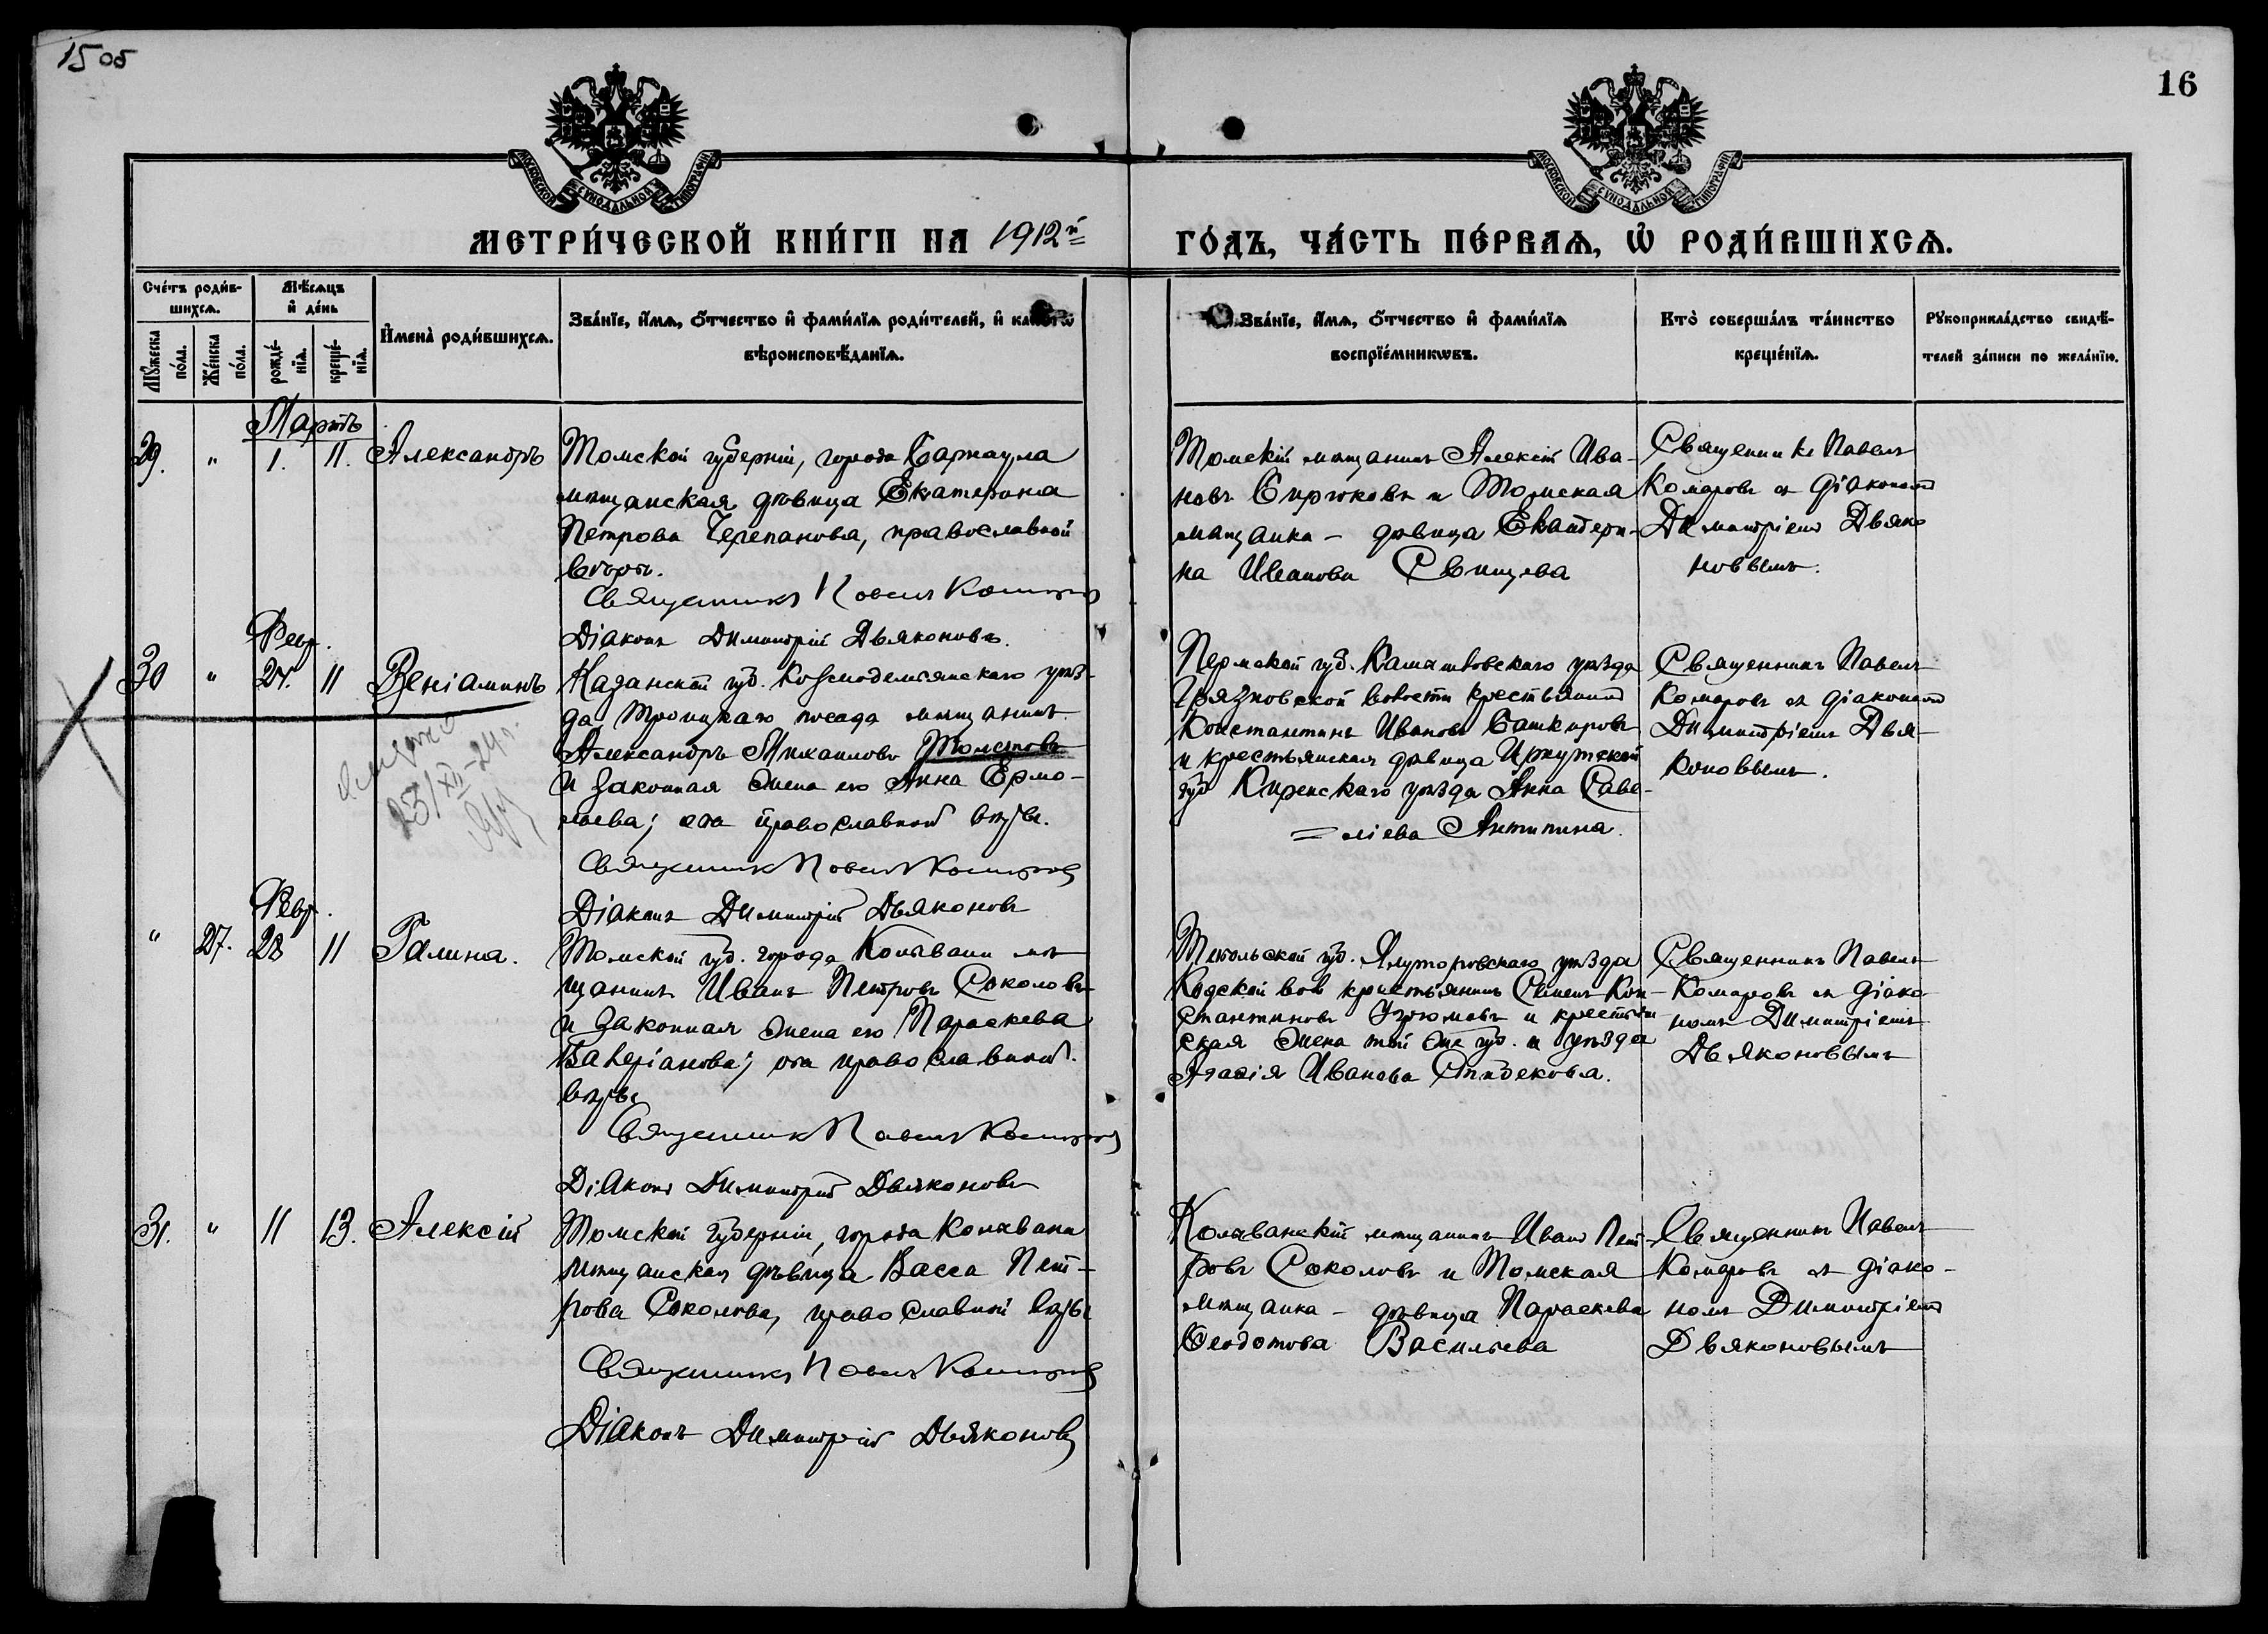 15 об
16
МОСКОВСКОЙ СУНОДАЛЬНОЙ ТИПОГРАФІИ
МОСКОВСКОЙ СУНОДАЛЬНОЙ ТИПОГРАФІИ
МЕТРИ́ЧЕСКОЙ КНИ́ГИ НА 1912й ГО́ДЪ, ЧА́СТЬ ПЕ́РВАѦ, Ѡ҆ РОДИ́ВШИХСѦ.
Сче́тъ роди́в-
шихсѧ.
Мѣ́сѧцъ
и҆ де́нь
Мꙋ́жеска
по́ла.
Же́нска
по́ла.
рожде́-
нїѧ.
креще́-
нїѧ.
И҆мена̀ роди́вшихсѧ.
Зва́нїе, и҆́мѧ, о҆́тчество и҆ фами́лїѧ роди́телей, и҆ како́гѡ
вѣроисповѣ́данїѧ.
Зва́нїе, и҆́мѧ, о҆́тчество и҆ фами́лїѧ
воспрїе́мникѡвъ.
Кто̀ соверша́лъ та́инство
креще́нїѧ.
Рꙋкоприкла́дство свидѣ́-
телей за́писи по жела́нїю.
Мартъ
29. " 1. 11. Александръ
Томской губерніи, города Барнаула
мѣщанская дѣвица Екатерина
Петрова Черепанова, православной
вѣры.
Священникъ Павелъ Комаровъ
Діаконъ Димитрій Дьяконовъ.
Томскій мѣщанинъ Алексій Ива-
новъ Бирюковъ и Томская
мѣщанка - дѣвица Екатери-
на Иванова Свищева
Священникъ Павелъ
Комаровъ съ діакономъ
Димитріемъ Дьяко
новымъ.
Февр.
30 " 24. 11 Веніаминъ
23/XII-24г.
Казанской губ. Козмодемьянскаго уѣз-
да Троицкаго посада мѣщанинъ
Александръ Михаиловъ Толстовъ
и законная жена его Анна Ермо-
лаева; оба православной вѣры.
Священникъ Павелъ Комаровъ
Діаконъ Димитрій Дьяконовъ
Пермской губ. Камышловскаго уѣзда
Грязновской волости крестьянинъ
Константинъ Ивановъ Башкировъ
и крестьянская дѣвица Иркутской
губ Киренскаго уѣзда Анна Саве-
=ліева Антипина.
Священникъ Павелъ
Комаровъ съ діакономъ
Димитріемъ Дья-
коновымъ.
Февр.
" 27. 28 11 Галина.
Томской губ. города Колывани мѣ
щанинъ Иванъ Петровъ Соколовъ
и законная жена его Параскева
Валеріанова; оба православной
вѣры
Священникъ Павелъ Комаровъ
Діаконъ Димитрій Дьяконовъ
Тобольской губ. Ялуторовскаго уѣзда
Кодской вол крестьянинъ Семенъ Кон-
стантиновъ Угрюмовъ и крестьян
ская жена той же губ. и уѣзда
Агафія Иванова
Священникъ Павелъ
Комаровъ съ діако
номъ Димитріемъ
Дьяконовымъ
31. " 11 13. Алексій
Томской губерніи, города Колывани
мѣщанская дѣвица Васса Пет-
рова Соколова, православной вѣры
Священникъ Павелъ Комаровъ
Діаконъ Димитрій Дьяконовъ
Колыванскій мѣщанинъ Иванъ Пет-
ровъ Соколовъ и Томская
мѣщанка - дѣвица Параскева
Ѳеодотова Васильева
Священникъ Павелъ
Комаровъ съ діако-
номъ Димитріемъ
Дьяконовымъ